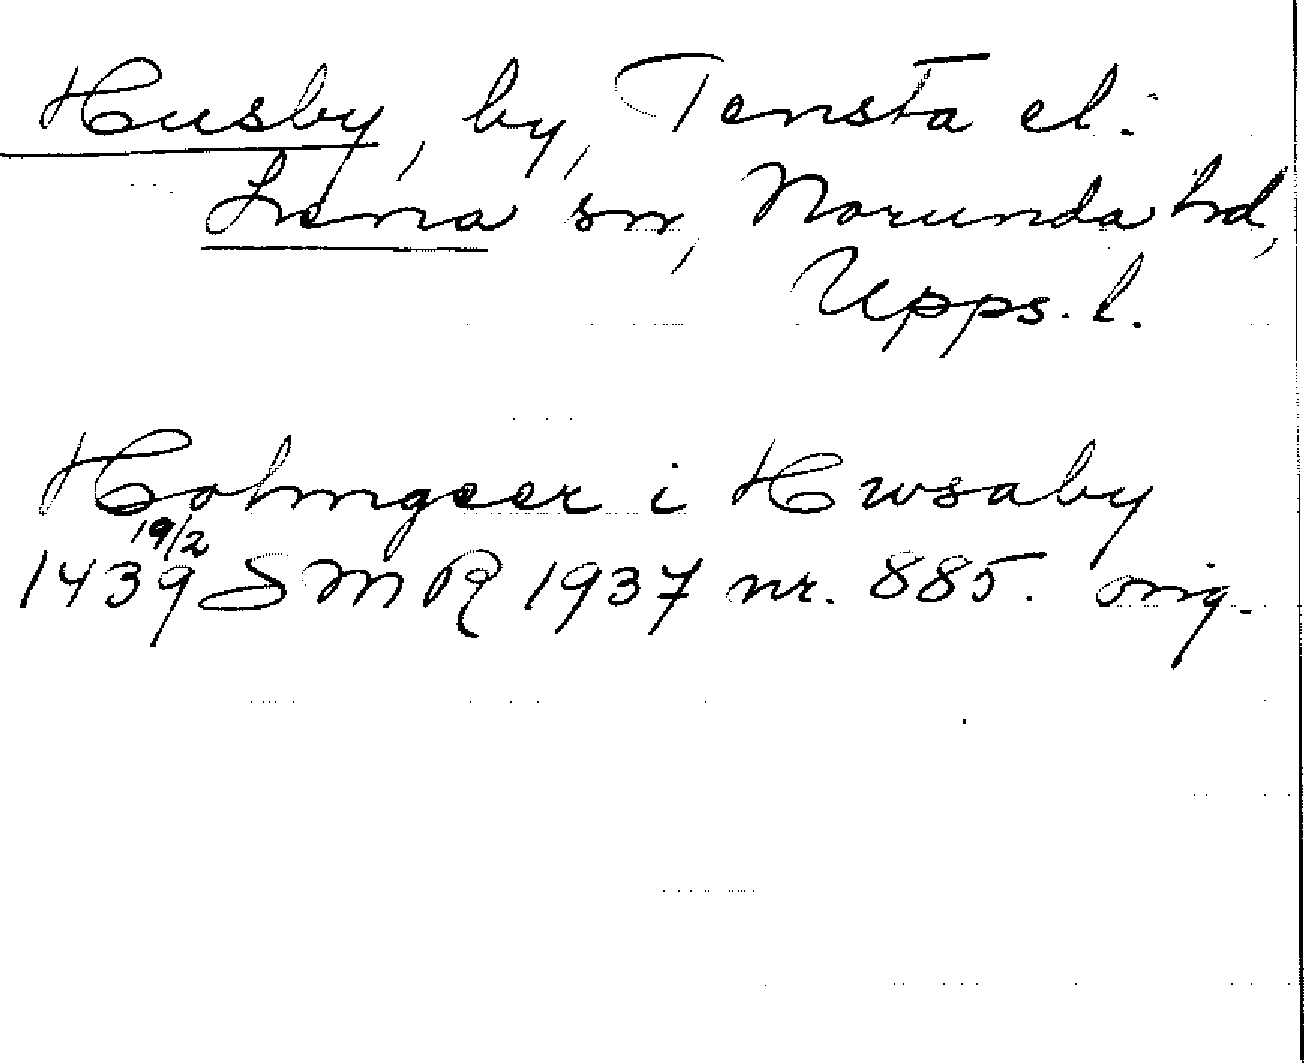 Husby, by, Tensta el.
Lena sn, Norunda hd,
Upps. l.
Holmgeer i Hwsaby
19/2
1439 SMR 1937 nr. 885. orig.